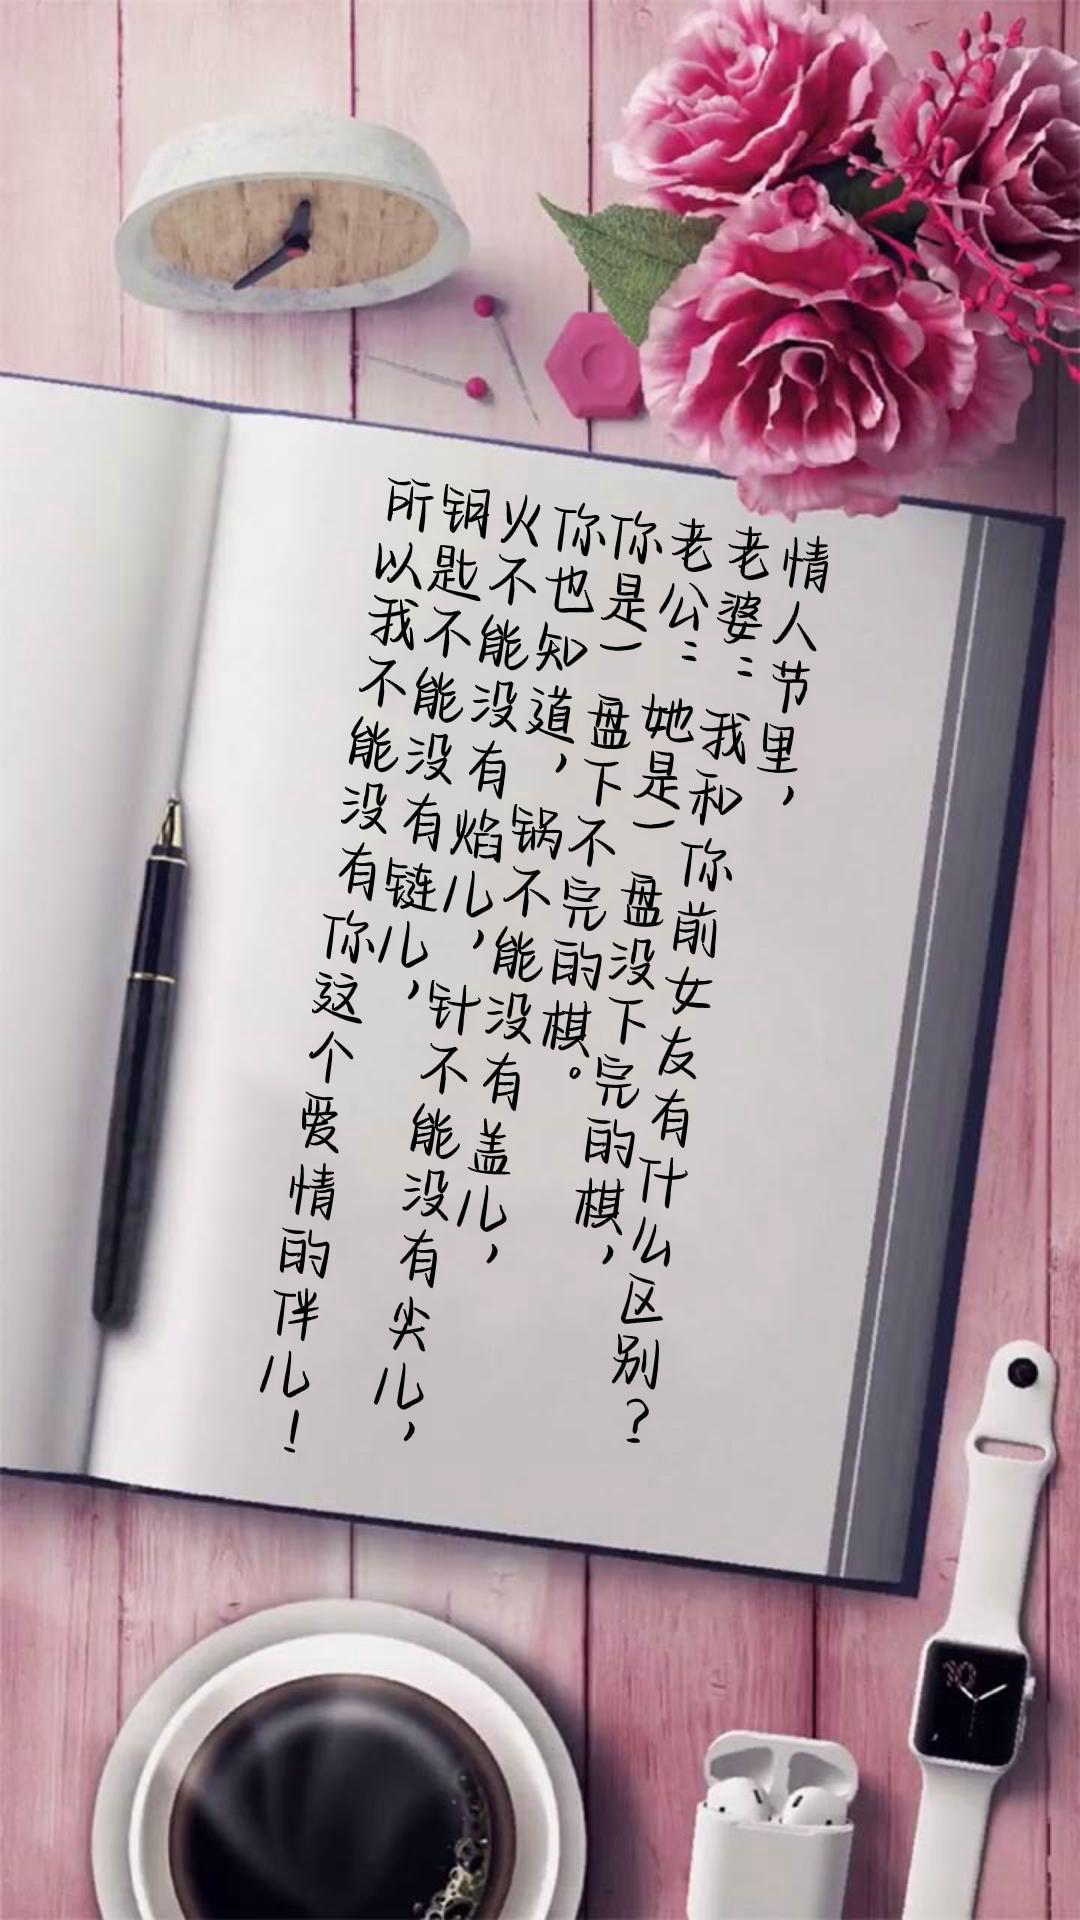 情人节里，
老婆：我和你前女友有什么区别？
老公：她是一盘没下完的棋，
你是一盘下不完的棋。
你也知道，锅不能没有盖儿，
火不能没有焰儿，针不能没有尖儿，
钥匙不能没有链儿，
所以我不能没有你这个爱情的伴儿！